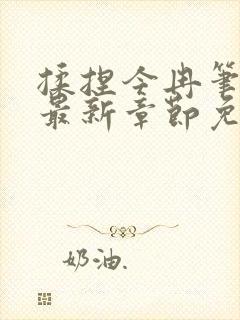 揉捏今冉笔
最新章节免
奶油.